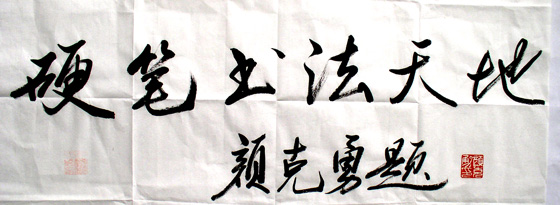 硬笔书法天地
颜克勇题